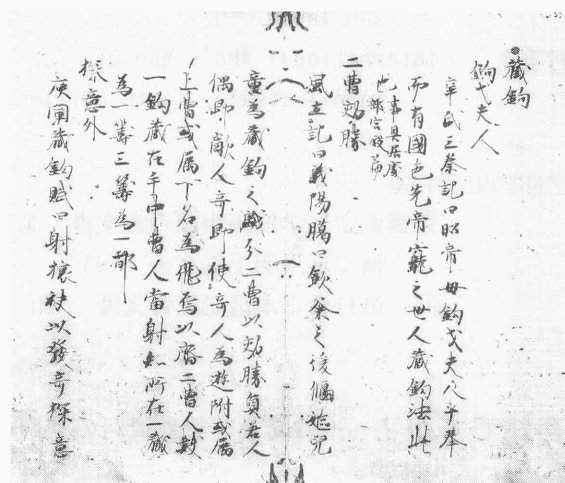 藏鉤
鉤弋夫人
辛氏三秦記曰昭帝母鉤弋夫人手拳
而有國色先帝寵之世人藏鉤法此
也事具居處
部宮殿篇
二曹効勝
風土記曰義陽臘日飲祭之後傴嫗兒
童為藏鉤之戲分二曹以効勝負若人
偶即敵人奇即使奇人為遊附或屬
上曹或屬下名為飛鳥以齊二曹人數
一鉤藏在手中曹人當射知所在一藏
為籌三籌為一都
探意外
庾闡藏鉤賦曰射攘袂以發奇探意